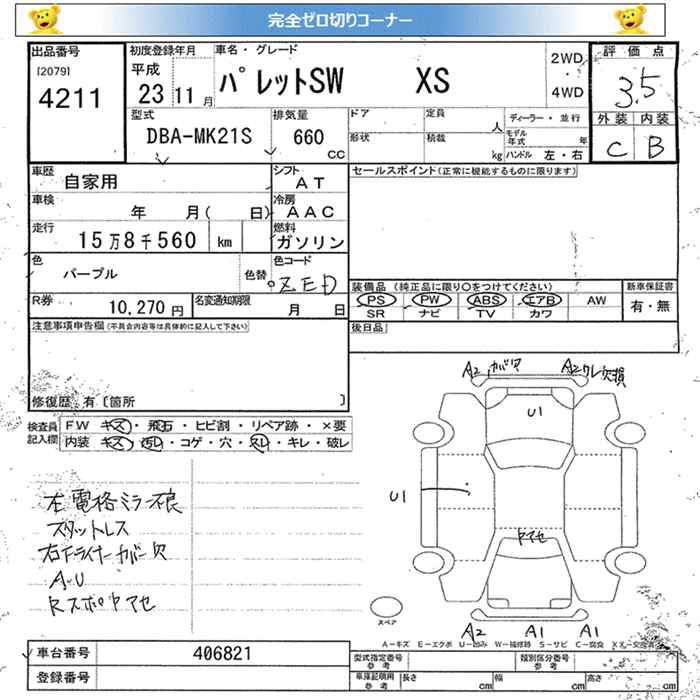 完全ゼロ切りコーナー
出品番号
[2079]
4211
初度登録年月
平成
23 11 月
車名・グレード
パレットSW XS
2WD
・
4WD
評価点
3.5
外装 内装
C B
型式
DBA-MK21S
排気量
660
CC
ドア
形状
定員
人
積載
kg
ディーラー・並行
モデル年式 年
ハンドル 左・右
車歴
自家用
シフト
AT
セールスポイント(正常に機能するものに限ります)
車検
年 月( 日)
冷房
AAC
走行
15万8千560 km
燃料
ガソリン
色
パープル
色替
色コード
ZED
装備品 (純正品に限り○をつけてください)
PS PW ABS エアB AW
SR ナビ TV カワ
新車保証書
有・無
R券
10,270 円
名変通知期限
月 日
後日品
注意事項申告欄(不具合内容等は具体的に記入して下さい)
修復歴 有〔箇所 〕
検査員記入欄
FW キズ・飛石・ヒビ割・リペア跡・×要
内装 キズ・汚レ・コゲ・穴・スレ・キレ・破レ
左電格ミラー不良
スタットレス
右ドライナーカバー欠
A・U
Rスポヤアセ
A2 ガバワ
A2ワレ欠損
U1
U1
ヤアセ
スペア
A2 A1 A1
A-キズ E-エクボ U-凹み W-補修跡 S-サビ C-腐食
車台番号
406821
登録番号
型式指定番号
参考
類別区分番号
参考
車庫証明用
参考
長さ cm
幅 cm
高さ cm